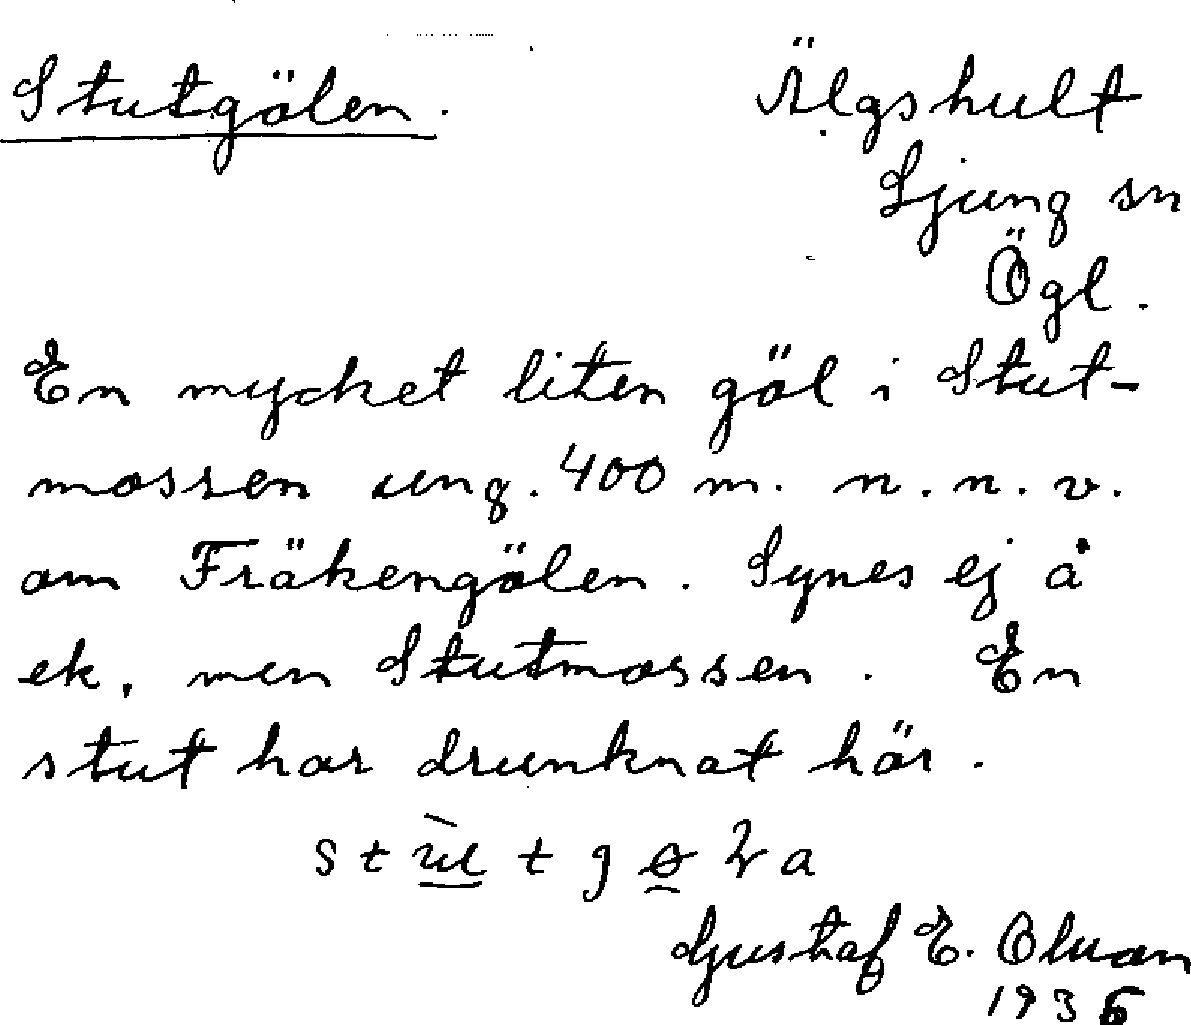 Stutgölen.
Älgshult
Ljung sn
Ögl.
En mycket liten göl i Stut-
mossen ung. 400 m. n. n. v.
om Fräkengölen. Synes ej å
ek, men Stutmossen. En
stut har drunknat här.
Gustaf E. Olson
1936